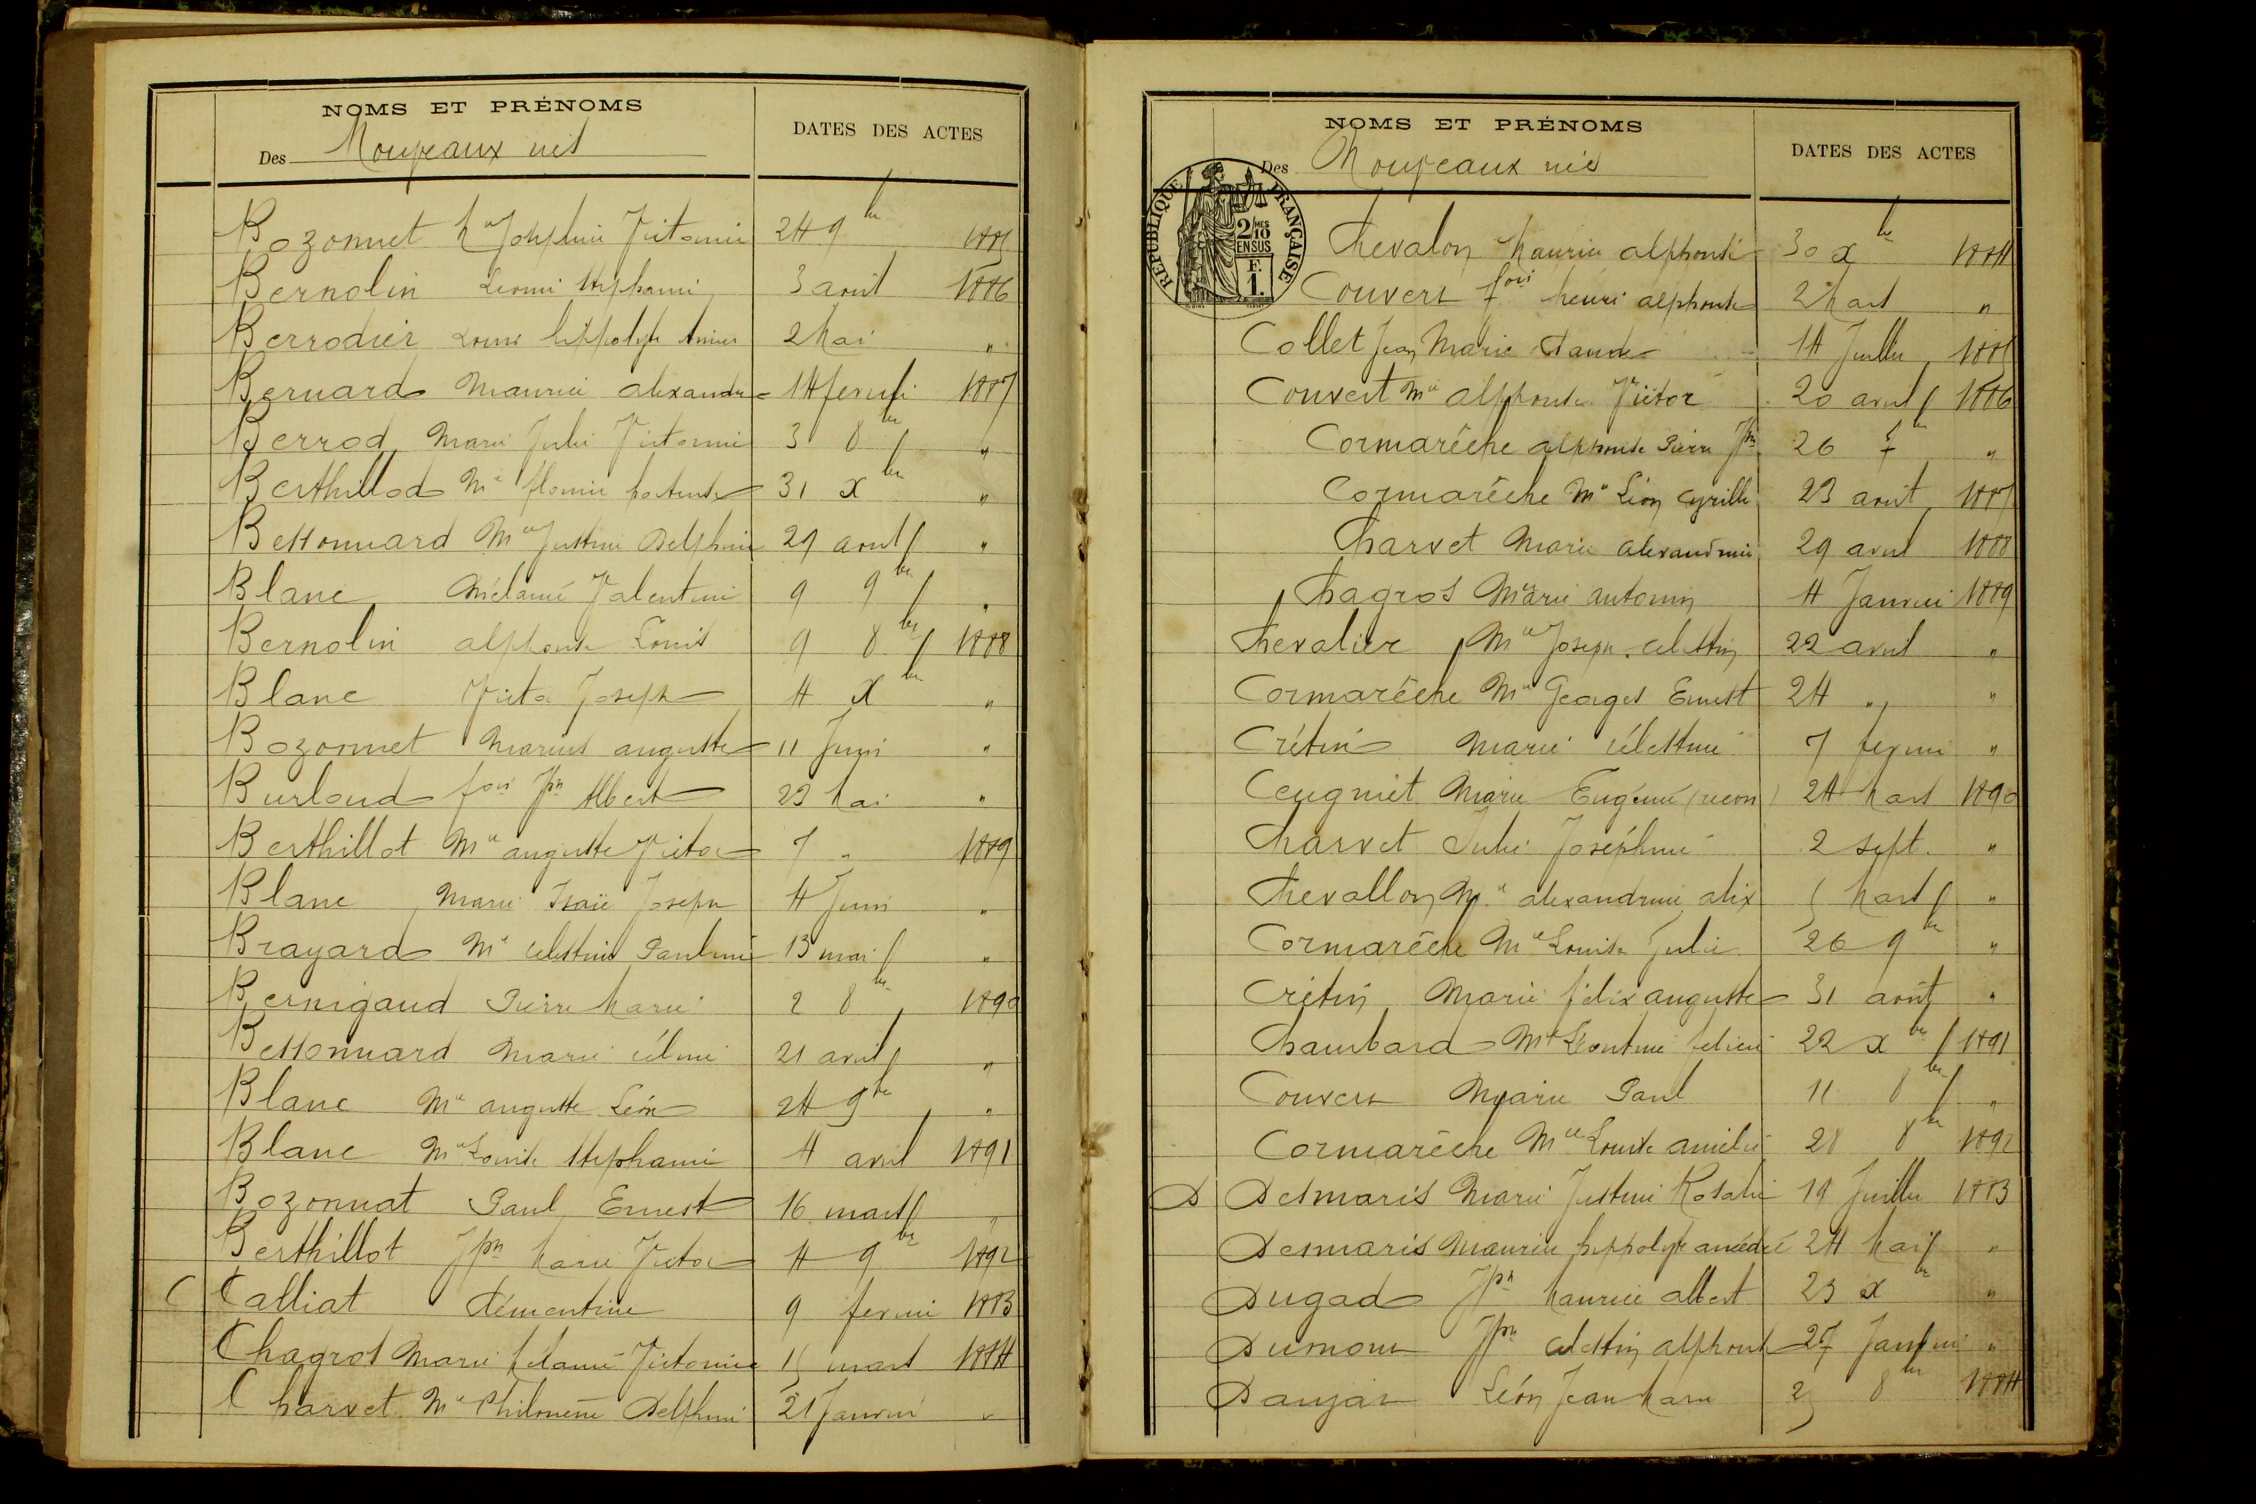 NOMS ET PRÉNOMS
DATES DES ACTES
Des Nouveaux nés
Bozonnet Mie Joséphine Victorine 24 9bre 1885
Bernolin Léonie Stéphanie 3 août 1886
Berrodier Louis hippolyte 2 Mai "
Bernard Maurice alexandre 14 février 1887
Berrod Marie Julie Victorine 3 8bre "
Berthillod Mie 31 xbre "
Bessonnard Mie Justine Delphine 29 "
Blanc Mélanie Valentine 9 9bre "
Bernolin alphonse Louis 9 8bre 1888
Blanc Victor Joseph 4 Xbre "
Bozonnet Marius auguste 11 Juin "
Burloud fois Jph Albert 23 Mai "
Berthillot Mie auguste Victor 7 " 1889
Blanc Marie Isaïe Joseph 4 Juin "
Brayard Mie Célestine Pauline 13 mai "
Bernigaud Pierre Marie 2 8bre 1890
Bessonnard Marie 21 avril "
Blanc Mie auguste Léon 24 9bre "
Blanc Mie Louise Stéphanie 4 avril 1891
Bozonnat Paul Ernest 16 mars "
Berthillot Jph Marie Victor 4 9bre 1892
C Calliat Clémentine 9 février 1883
Chagrot Marie Mélanie Victorine 15 mars 1884
Charvet Mie Philomène Delphine 21 Janvier "
NOMS ET PRÉNOMS
DATES DES ACTES
Des Nouveaux nés
RÉPUBLIQUE FRANÇAISE
2/10 MES
EN SUS
F.
1.
Chevalon Maurice alphonse 30 xbre 1884
Couvert fois henri alphonse 2 Mars "
Collet Jean Marie Claude 14 Juillet 1885
Couvert Mie alphonse Victor 20 avril 1886
Cormarêche alphonse Pierre Jph 26 7bre "
Cormarêche Mie Léon Cyrille 23 août 1887
Charvet Marie alexandrine 29 avril 1888
Chagros Marie antonin 4 Janvier 1889
Chevalier Mie Joseph Célestin 22 avril "
Cormarêche Mie Georges Ernest 24 " "
Crétin Marie Célestine 7 février "
Ceugniet Marie Eugénie 24 Mars 1890
Charvet Julie Joséphine 2 sept. "
Chevallon Mie alexandrine alix 5 Mars "
Cormarêche Mie Louise Julie 26 9bre "
Crétin Marie félix auguste 31 août "
Chambard Mie Léontine félicie 22 xbre 1891
Couvert Marie Paul 11 8bre "
Cormarêche Mie Louise amélie 28 8bre 1892
D Desmaris Marie Justine Rosalie 19 Juillet 1883
Desmaris Maurice hippolyte amédée 24 Mai "
Dugad Jph Maurice albert 23 xbre "
Dumont Jph Célestin alphonse 27 Janvier "
Daujat Léon Jean Marie 25 8bre 1884